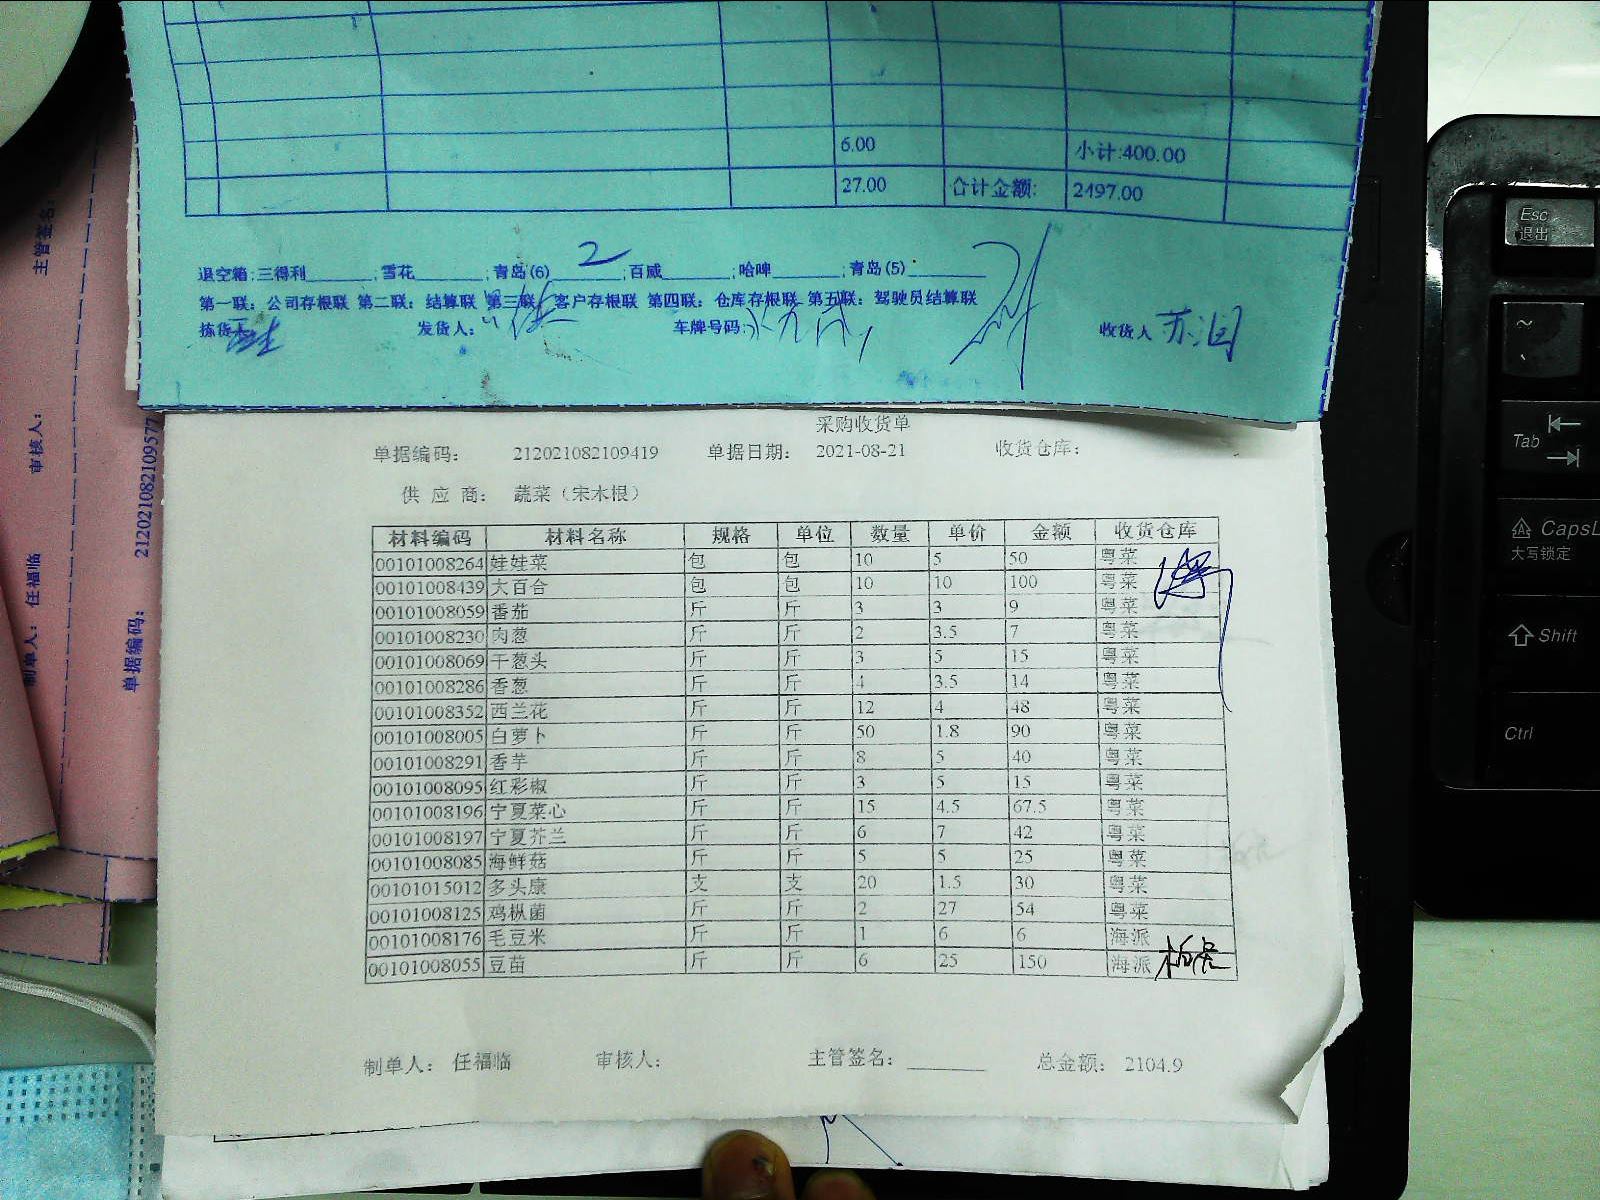 6.00 小计:400.00
27.00 合计金额: 2497.00
退空箱;三得利______;雪花______;青岛(6)___2___;百威______;哈啤______;青岛(5)______
第一联：公司存根联 第二联：结算联 第三联：客户存根联 第四联：仓库存根联 第五联：驾驶员结算联
拣货人 发货人： 车牌号码： 收货人 苏润
采购收货单
单据编码： 212021082109419 单据日期： 2021-08-21 收货仓库：
供 应 商： 蔬菜（宋木根）
材料编码 材料名称 规格 单位 数量 单价 金额 收货仓库
00101008264 娃娃菜 包 包 10 5 50 粤菜
00101008439 大百合 包 包 10 10 100 粤菜
00101008059 番茄 斤 斤 3 3 9 粤菜
00101008230 肉葱 斤 斤 2 3.5 7 粤菜
00101008069 干葱头 斤 斤 3 5 15 粤菜
00101008286 香葱 斤 斤 4 3.5 14 粤菜
00101008352 西兰花 斤 斤 12 4 48 粤菜
00101008005 白萝卜 斤 斤 50 1.8 90 粤菜
00101008291 香芋 斤 斤 8 5 40 粤菜
00101008095 红彩椒 斤 斤 3 5 15 粤菜
00101008196 宁夏菜心 斤 斤 15 4.5 67.5 粤菜
00101008197 宁夏芥兰 斤 斤 6 7 42 粤菜
00101008085 海鲜菇 斤 斤 5 5 25 粤菜
00101015012 多头康 支 支 20 1.5 30 粤菜
00101008125 鸡枞菌 斤 斤 2 27 54 粤菜
00101008176 毛豆米 斤 斤 1 6 6 海派
00101008055 豆苗 斤 斤 6 25 150 海派
制单人： 任福临 审核人： 主管签名：______ 总金额： 2104.9
主管签名:
审核人:
制单人: 任福临
单据编码: 212021082109577
Esc
退出
~
Tab
CapsL
大写锁定
Shift
Ctrl